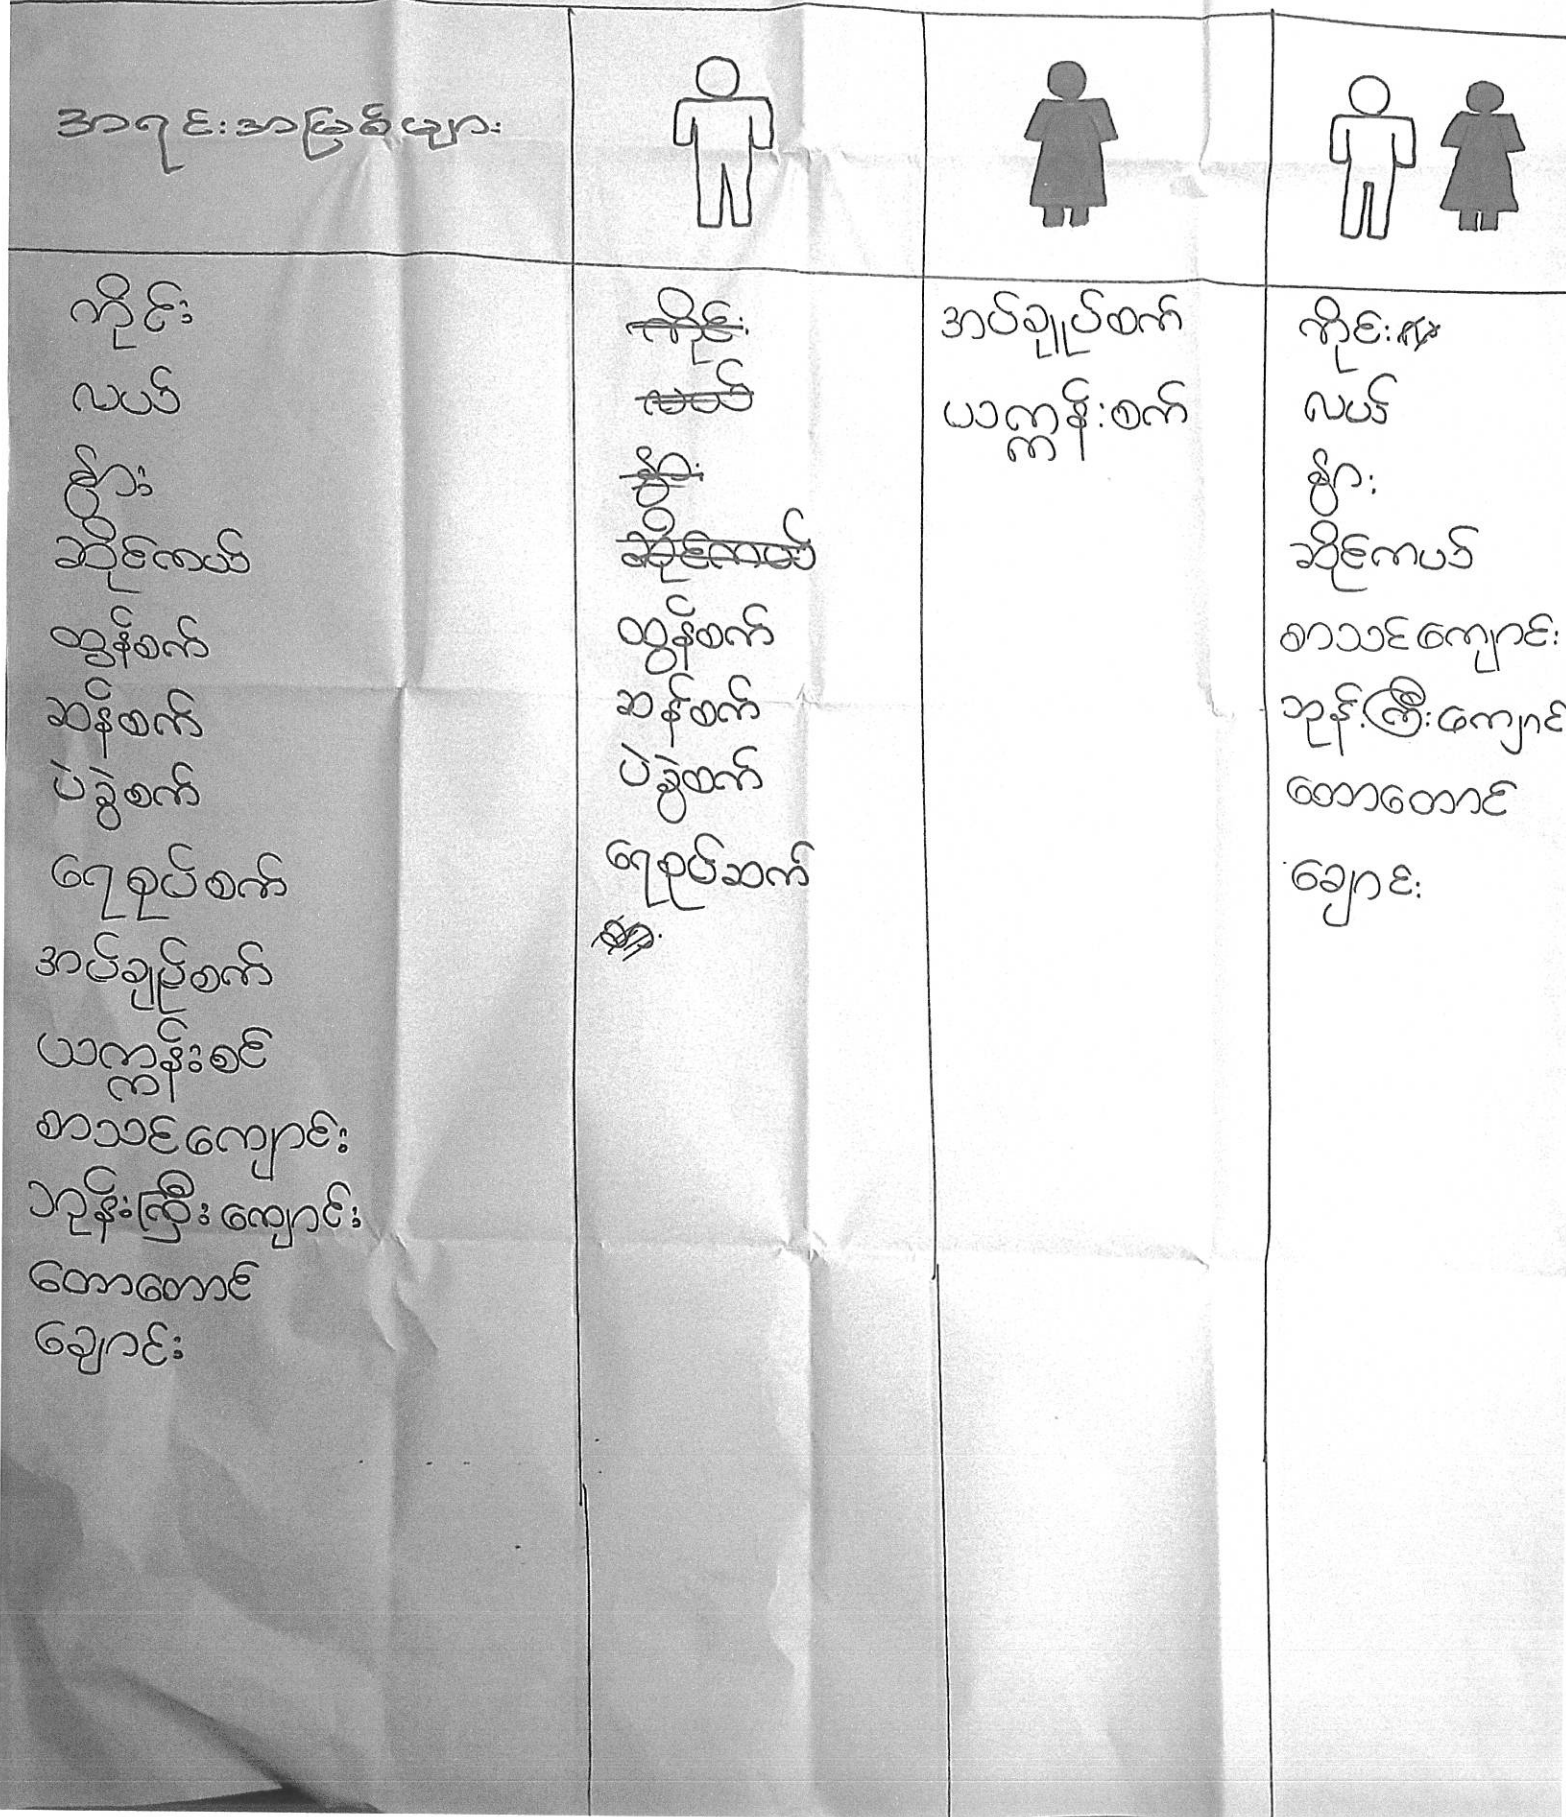 အရင်းအမြစ်များ
ကိုင်း
လယ်
နွား
ဆိုင်ကယ်
ထွန်စက်
ဆန်စက်
ပဲခွဲစက်
ရေစုပ်စက်
အပ်ချုပ်စက်
ယက္ကန်းစင်
စာသင်ကျောင်း
ဘုန်းကြီးကျောင်း
တောတောင်
ချောင်း
ကိုင်း
လယ်
နွား
ဆိုင်ကယ်
ထွန်စက်
ဆန်စက်
ပဲခွဲစက်
ရေစုပ်ဆက်
အပ်ချုပ်စက်
ယက္ကန်းစက်
ကိုင်း
လယ်
နွား
ဆိုင်ကယ်
စာသင်ကျောင်း
ဘုန်းကြီးကျောင်
တောတောင်
ချောင်း